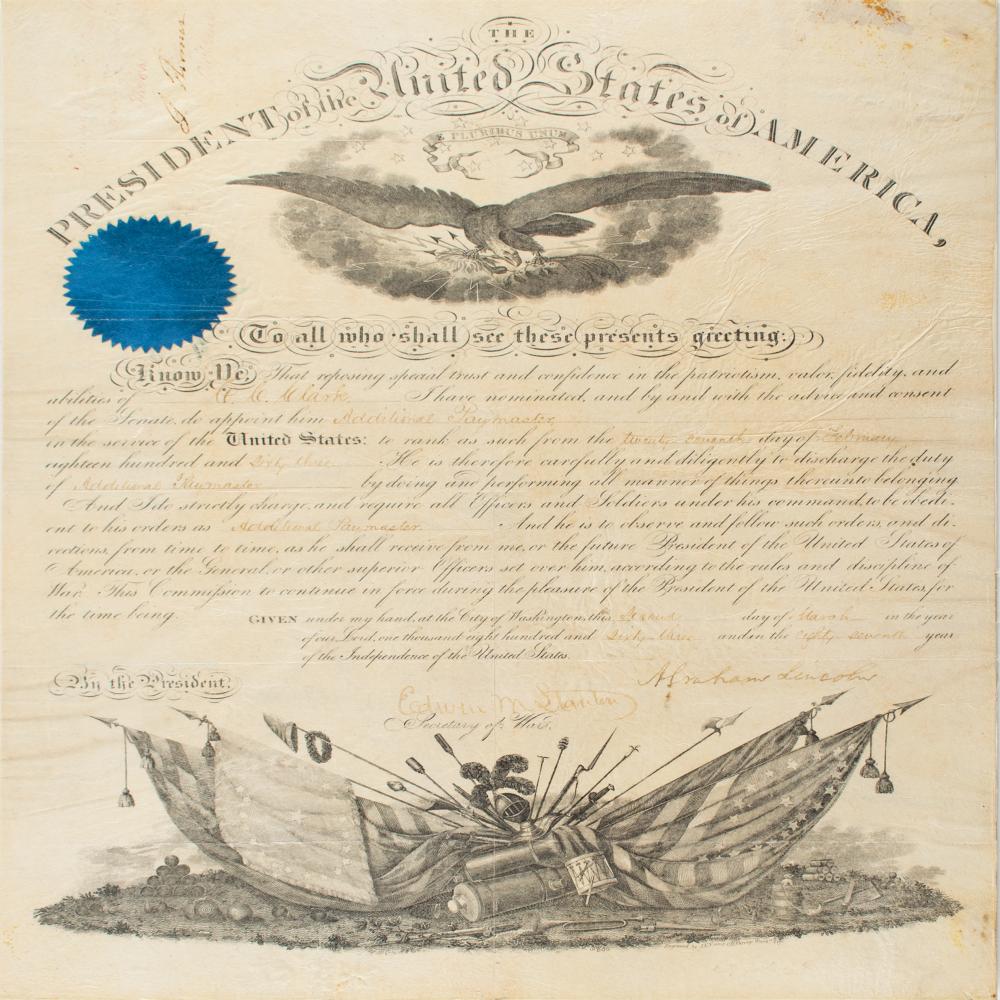 THE
PRESIDENT of the United States of AMERICA,
E PLURIBUS UNUM
To all who shall see these presents greeting:
Know Ye, That reposing special trust and confidence in the patriotism, valor, fidelity, and
abilities of Clark I have nominated, and by and with the advice and consent
of the Senate, do appoint him Additional Paymaster
in the service of the United States: to rank as such from the twenty seventh day of February
eighteen hundred and sixty three. He is therefore carefully and diligently to discharge the duty
of Additional Paymaster by doing and performing all manner of things thereunto belonging
And I do strictly charge, and require all Officers and Soldiers under his command, to be obedi-
ent to his orders as Additional Paymaster. And he is to observe and follow such orders, and di-
rections, from time to time, as he shall receive from me, or the future President of the United States of
America, or the General, or other superior Officers set over him, according to the rules and discipline of
War. This Commission to continue in force during the pleasure of the President of the United States for
the time being.
GIVEN under my hand, at the City of Washington, this Second day of March in the year
of our Lord, one thousand eight hundred and sixty three and in the eighty seventh year
of the Independence of the United States.
By the President,
Abraham Lincoln
Edwin M Stanton
Secretary of War.